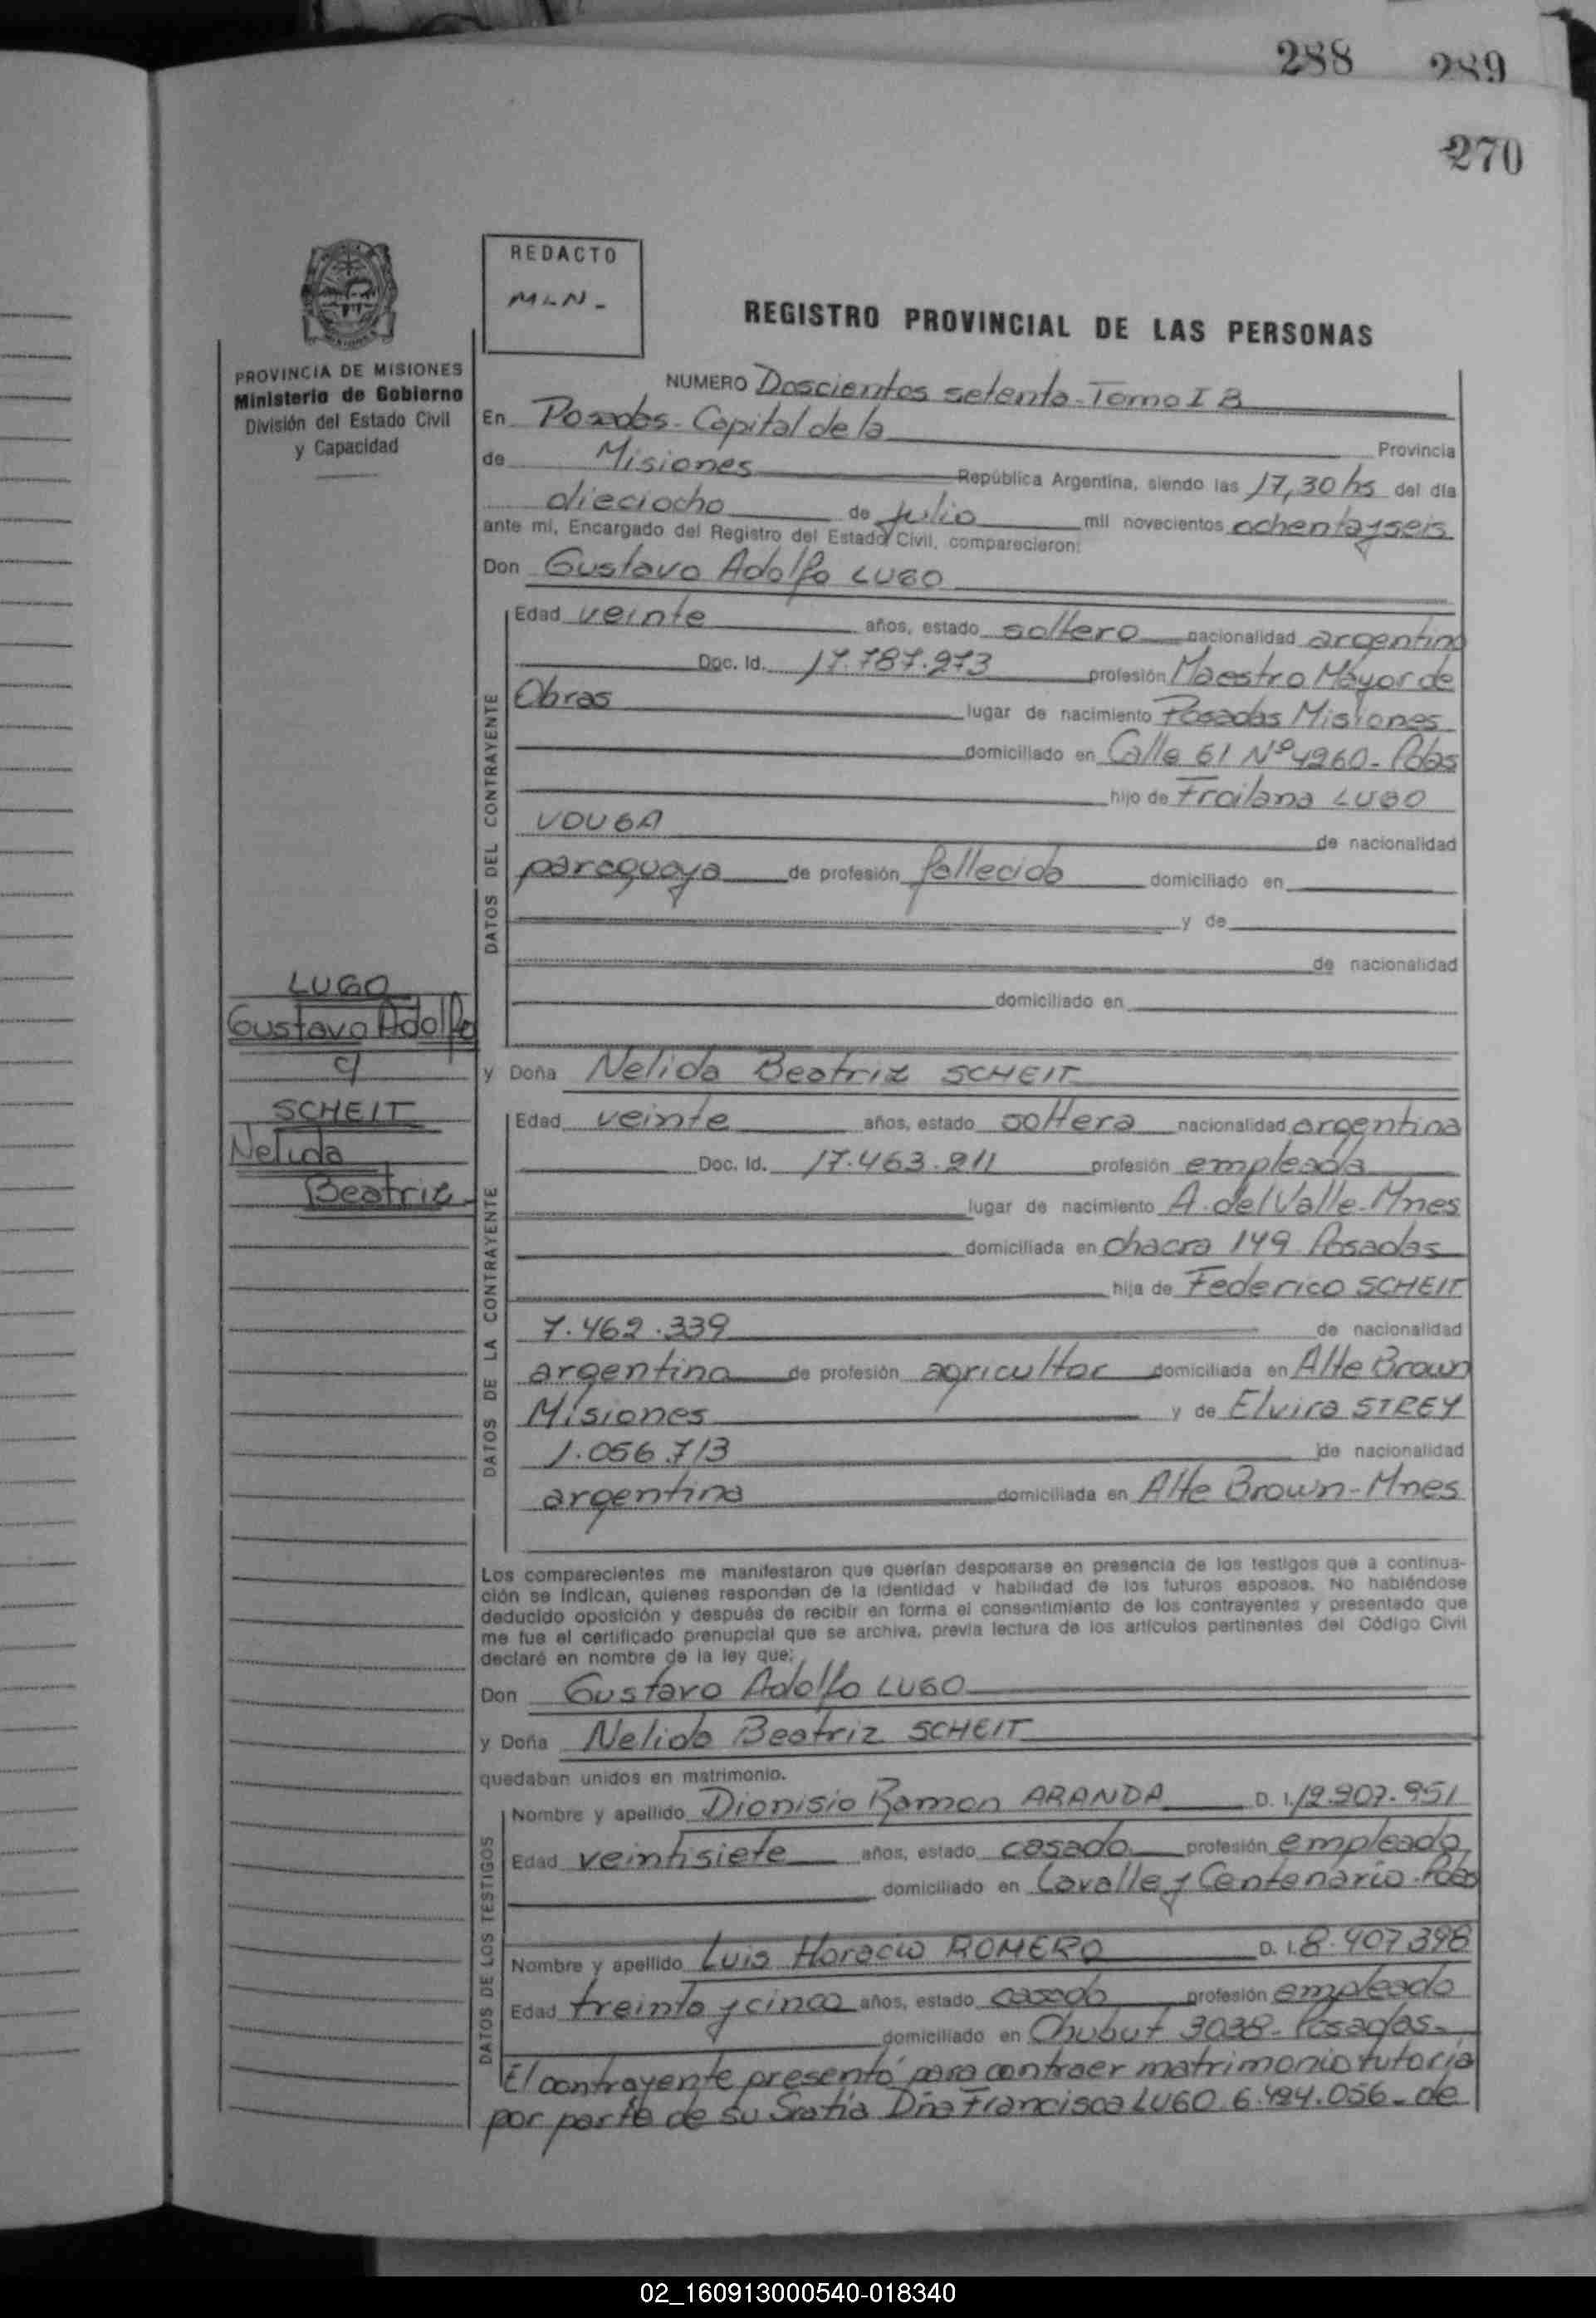 288 289
270
REDACTO
MLN-
REGISTRO PROVINCIAL DE LAS PERSONAS
PROVINCIA DE MISIONES
Ministerio de Gobierno
División del Estado Civil
y Capacidad
NUMERO Doscientos setenta-Tomo I B
En Posadas-Capital de la Provincia
de Misiones República Argentina, siendo las 17,30 hs del día
dieciocho de julio mil novecientos ochenta y seis
ante mí, Encargado del Registro del Estado Civil, comparecieron:
Don Gustavo Adolfo LUGO
DATOS DEL CONTRAYENTE
Edad veinte años, estado soltero nacionalidad argentino
Doc. Id. 17.787.973 profesión Maestro Mayor de
Obras lugar de nacimiento Posadas Misiones
domiciliado en Calle 61 Nº 4260-Pdas
hijo de Froilana LUGO
VOUGA de nacionalidad
paraguaya de profesión fallecida domiciliado en
y de
de nacionalidad
domiciliado en
LUGO
Gustavo Adolfo
c/
SCHEIT
Nelida
Beatriz
y Doña Nelida Beatriz SCHEIT
DATOS DE LA CONTRAYENTE
Edad veinte años, estado soltera nacionalidad argentina
Doc. Id. 17.463.211 profesión empleada
lugar de nacimiento A. del Valle-Mnes
domiciliada en chacra 149 Posadas
hija de Federico SCHEIT
7.462.339 de nacionalidad
argentina de profesión agricultor domiciliada en Alte Brown
Misiones y de Elvira STREY
1.056.713 de nacionalidad
argentina domiciliada en Alte Brown-Mnes
Los comparecientes me manifestaron que querían desposarse en presencia de los testigos que a continua-
ción se indican, quienes responden de la identidad y habilidad de los futuros esposos. No habiéndose
deducido oposición y después de recibir en forma el consentimiento de los contrayentes y presentado que
me fue el certificado prenupcial que se archiva, previa lectura de los artículos pertinentes del Código Civil
declaré en nombre de la ley que:
Don Gustavo Adolfo LUGO
y Doña Nelida Beatriz SCHEIT
quedaban unidos en matrimonio.
DATOS DE LOS TESTIGOS
Nombre y apellido Dionisio Ramon ARANDA D. I. 12.207.951
Edad veintisiete años, estado casado profesión empleado
domiciliado en Lavalle y Centenario-Pdas
Nombre y apellido Luis Horacio ROMERO D. I. 8.407.398
Edad treinta y cinco años, estado casado profesión empleado
domiciliado en Chubut 3038-Posadas-
El contrayente presentó para contraer matrimonio tutoria
por parte de su Sra tía Dña Francisca LUGO 6.424.056- de
02_160913000540-018340